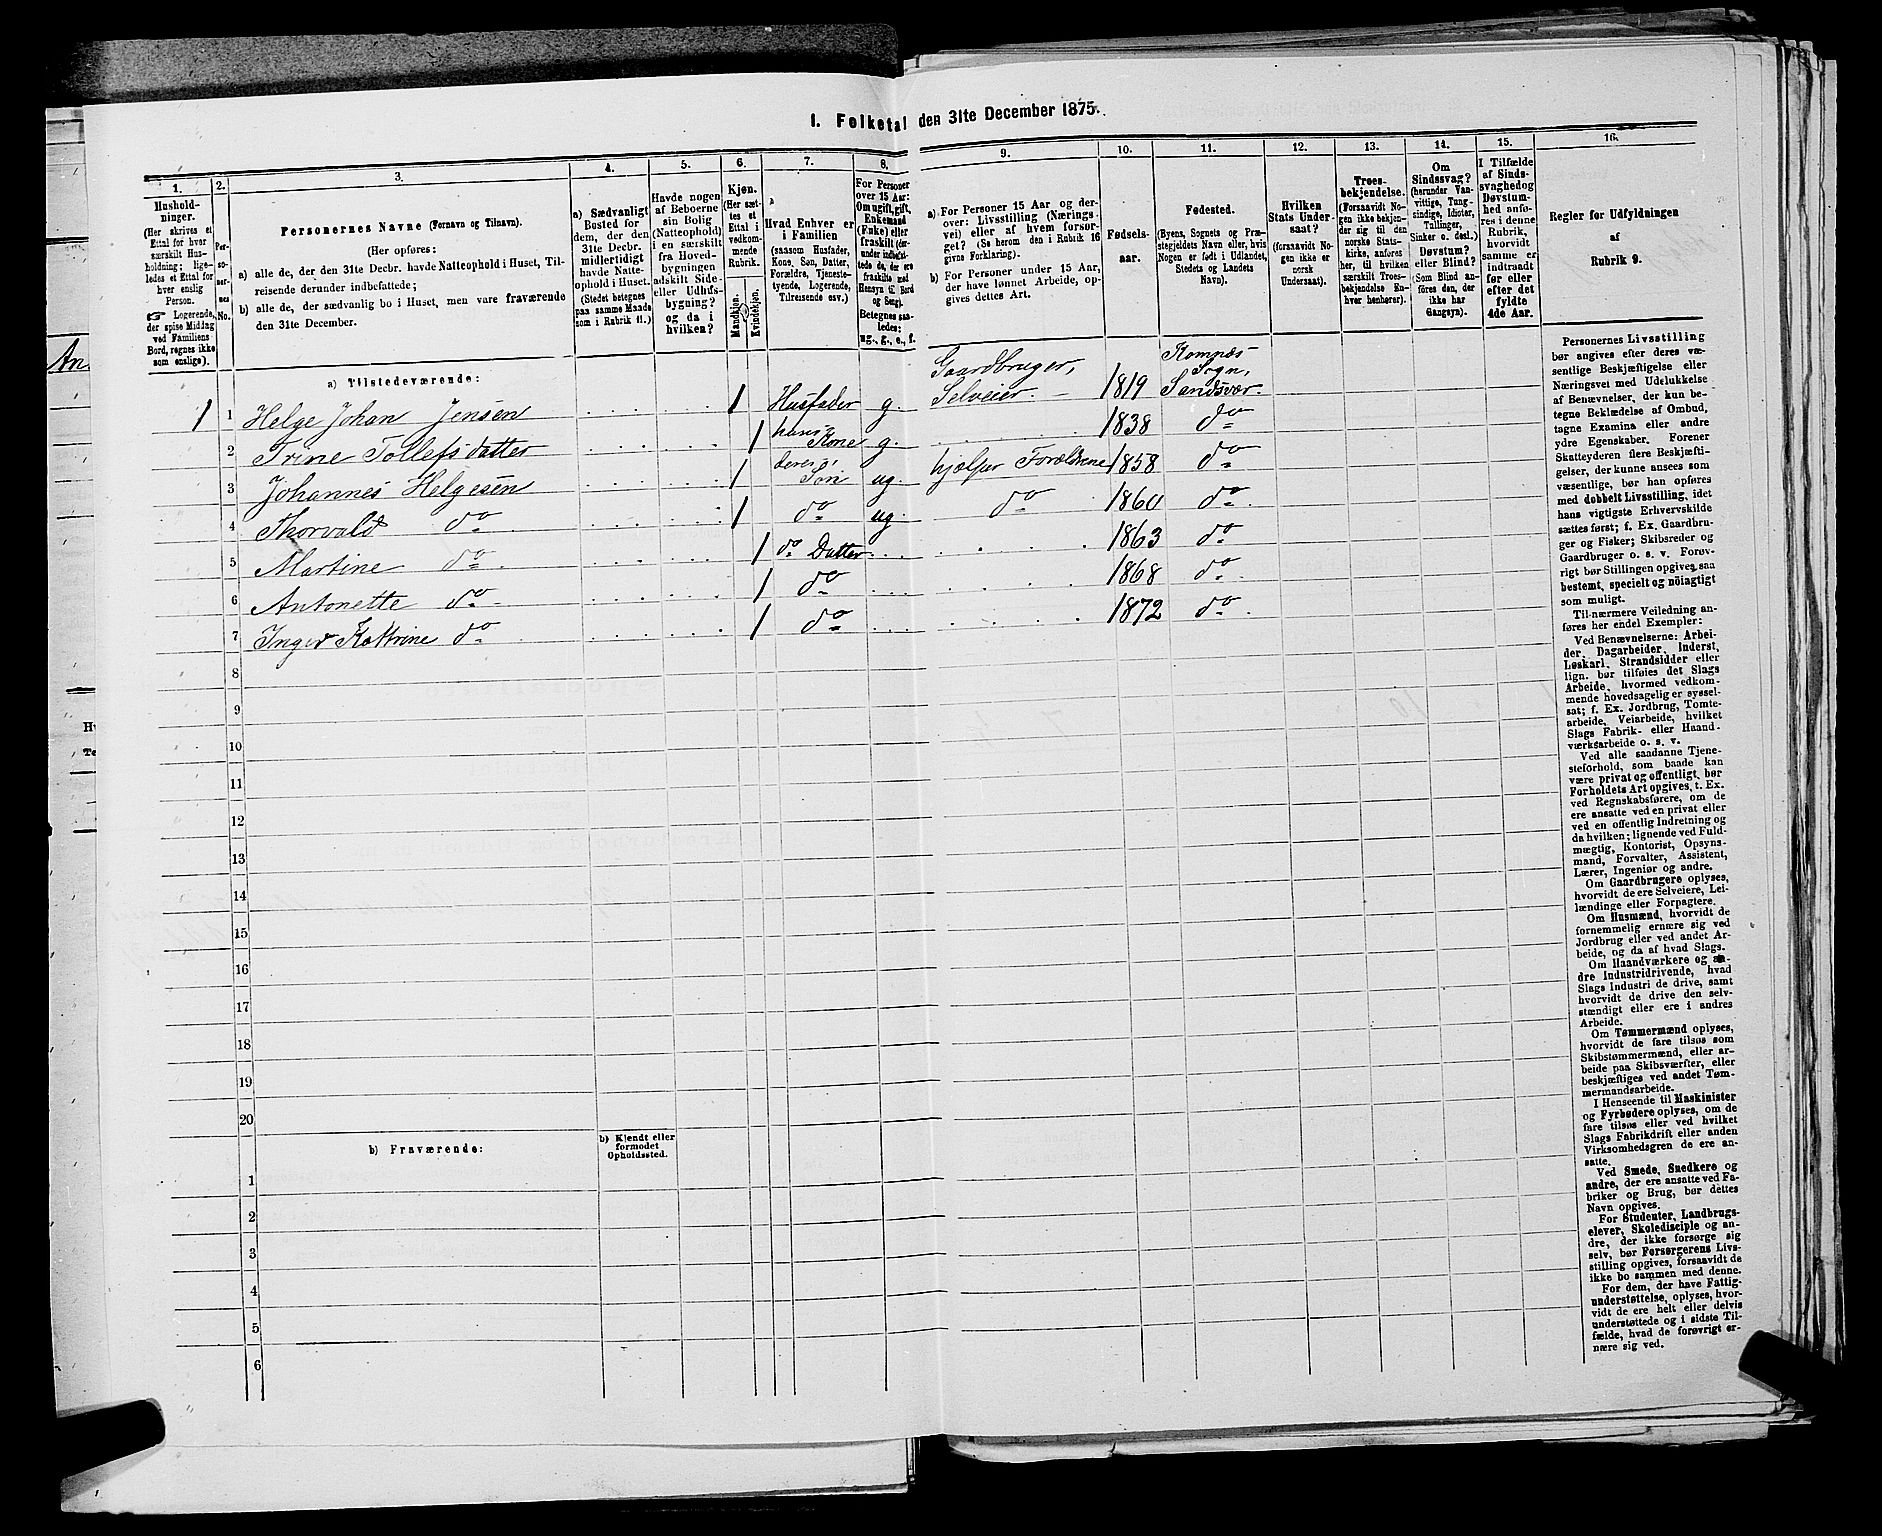 I. Folketal den 31te December 1875.
1.
Hushold-
ninger.
(Her skrives et
Ettal for hver
særskilt Hus-
holdning; lige-
ledes et Ettal for
hver enslig
Person.
☞ Logerende,
der spise Middag
ved Familiens
Bord, regnes ikke
som enslige).
2.
Per-
so-
ner-
nes
No.
3.
Personernes Navne (Fornavn og Tilnavn).
(Her opføres:
a) alle de, der den 31te Decbr. havde Natteophold i Huset, Til-
reisende derunder indbefattede;
b) alle de, der sædvanlig bo i Huset, men vare fraværende
den 31te December.
4.
a) Sædvanligt
Bosted for
dem, der den
31te Decbr.
midlertidigt
havde Natte-
ophold i Huset.
(Stedet betegnes
paa samme Maade
som i Rubrik 11.)
5.
Havde nogen
af Beboerne
sin Bolig
(Natteophold)
i en særskilt
fra Hoved-
bygningen
adskilt Side-
eller Udhus-
bygning?
og da i
hvilken?
6.
Kjøn.
(Her sæt-
tes et
Ettal i
vedkom-
mende
Rubrik.
Mandkjøn.
Kvindekjøn.
7.
Hvad Enhver er
i Familien
(saasom Husfader,
Kone, Søn, Datter,
Forældre, Tjeneste-
tyende, Logerende,
Tilreisende esv.)
8.
For Personer
over 15 Aar:
Om ugift, gift,
Enkemand
(Enke) eller
fraskilt (der-
under indbefat-
tede de, der ere
fraskilte med
Hensyn til Bord
og Seng).
Betegnes saa-
ledes:
ug., g., e., f.
9.
a) For Personer 15 Aar og der-
over: Livsstilling (Nærings-
vei) eller af hvem forsør-
get? (Se herom den i Rubrik 16
givne Forklaring).
b) For Personer under 15 Aar,
der have lønnet Arbeide, op-
gives dettes Art.
10.
Fødsels-
aar.
11.
Fødested.
(Byens, Sognets og Præ-
stegjeldets Navn eller, hvis
Nogen er født i Udlandet,
Stedets og Landets
Navn).
12.
Hvilken
Stats Under-
saat?
(forsaavidt No-
gen ikke er
norsk
Undersaat).
13.
Troes-
bekjendelse.
(Forsaavidt No-
gen ikke bekjen-
der sig til den
norske Stats-
kirke, anføres
her, til hvilken
særskilt Troes-
bekjendelse En-
hver henhører).
14.
Om
Sindssvag?
(herunder Van-
vittige, Tung-
sindige, Idioter,
Tullinger,
Sinker o. desl.)
Døvstum?
eller Blind?
(Som Blind an-
føres den, der
ikke har
Gangsyn).
15.
I Tilfælde
af Sinds-
svaghed og
Døvstum-
hed anfø-
res i denne
Rubrik,
hvorvidt
samme er
indtraadt
før eller
efter det
fyldte
4de Aar.
16.
Regler for Udfyldningen
af
Rubrik 9.
a) Tilstedeværende:
1 1 Helge Johan Jensen 1 Husfader g. Gaardbruger, Selveier. — 1819 Komnæs Sogn, Sandsvær.
2 Trine Tollefsdatter 1 hans Kone g. 1838 do
3 Johannes Helgesen 1 deres Søn ug. hjælper Forældrene 1858 do
4 Thorvald do 1 do ug. do 1860 do
5 Martine do 1 do Datter 1863 do
6 Antonette do 1 do 1868 do
7 Inger Kattrine do 1 do 1872 do
8
9
10
11
12
13
14
15
16
17
18
19
20
b) Fraværende:
b) Kjendt eller
formodet
Opholdssted.
1
2
3
4
5
6
Personernes Livsstilling
bør angives efter deres væ-
sentlige Beskjæftigelse eller
Næringsvei med Udelukkelse
af Benævnelser, der kun be-
tegne Beklædelse af Ombud,
tagne Examina eller andre
ydre Egenskaber. Forener
Skatteyderen flere Beskjæfti-
gelser, der kunne ansees som
væsentlige, bør han opføres
med dobbelt Livsstilling, idet
hans vigtigste Erhvervskilde
sættes først; f. Ex. Gaardbru-
ger og Fisker; Skibsreder og
Gaardbruger o. s. v. Forøv-
rigt bør Stillingen opgives saa
bestemt, specielt og nöiagtigt
som muligt.
Til nærmere Veiledning an-
føres her endel Exempler:
Ved Benævnelserne: Arbei-
der, Dagarbeider, Inderst,
Løskarl, Strandsidder eller
lign. bør tilføies det Slags
Arbeide, hvormed vedkom-
mende hovedsagelig er syssel-
sat; f. Ex. Jordbrug, Tomte-
arbeide, Veiarbeide, hvilket
Slags Fabrik- eller Haand-
værksarbeide o. s. v.
Ved alle saadanne Tjene-
steforhold, som baade kan
være privat og offentligt, bør
Forholdets Art opgives, t. Ex.
ved Regnskabsførere, om de
ere ansatte ved en privat eller
ved en offentlig Indretning og
da hvilken; lignende ved Fuld-
mægtig, Kontorist, Opsyns-
mand, Forvalter, Assistent,
Lærer, Ingeniør og andre.
Om Gaardbrugere oplyses,
hvorvidt de ere Selveiere, Lei-
lændinge eller Forpagtere.
Om Husmænd, hvorvidt de
fornemmelig ernære sig ved
Jordbrug eller ved andet Ar-
beide, og da af hvad Slags.
Om Haandværkere og an-
dre Industridrivende, hvad
Slags Industri de drive, samt
hvorvidt de drive den selv-
stændigt eller ere i andres
Arbeide.
Om Tømmermænd oplyses,
hvorvidt de fare tilsøs som
Skibstømmermænd, eller ar-
beide paa Skibsværfter, eller
beskjæftiges ved andet Tøm-
mermandsarbeide.
I Henseende til Maskinister
og Fyrbødere oplyses, om de
fare tilsøs eller ved hvilket
Slags Fabrikdrift eller anden
Virksomhedsgren de ere an-
satte.
Ved Smede, Snedkere og
andre, der ere ansatte ved Fa-
briker og Brug, bør dettes
Navn opgives.
For Studenter, Landbrugs-
elever, Skoledisciple og an-
dre, der ikke forsørge sig
selv, bør Forsørgerens Livs-
stilling opgives, forsaavidt de
ikke bo sammen med denne.
For dem, der have Fattig-
understøttelse, oplyses, hvor-
vidt de ere helt eller delvis
understøttede og i sidste Til-
fælde, hvad de forøvrigt er-
nære sig ved.